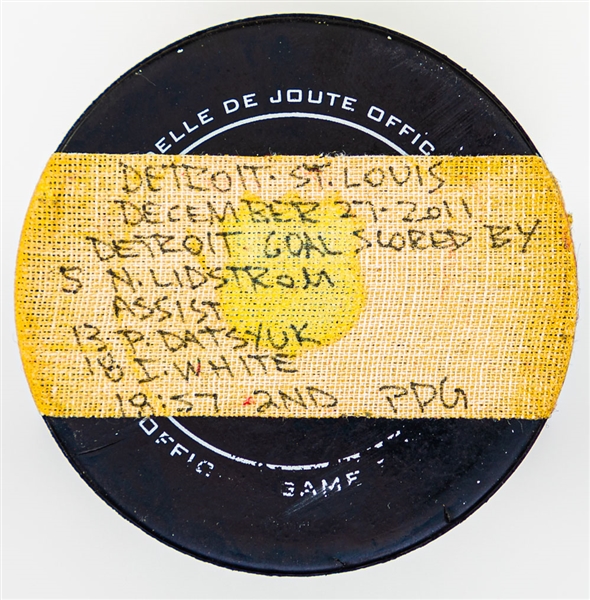 DELLE DE JOUTE OFFIC
DETROIT - ST. LOUIS
DECEMBER 27 - 2011
DETROIT GOAL SCORED BY
5 N. LIDSTROM
ASSIST
13 P. DATSYUK
18 I. WHITE
18:57 2ND PDG
OFFIC
GAME